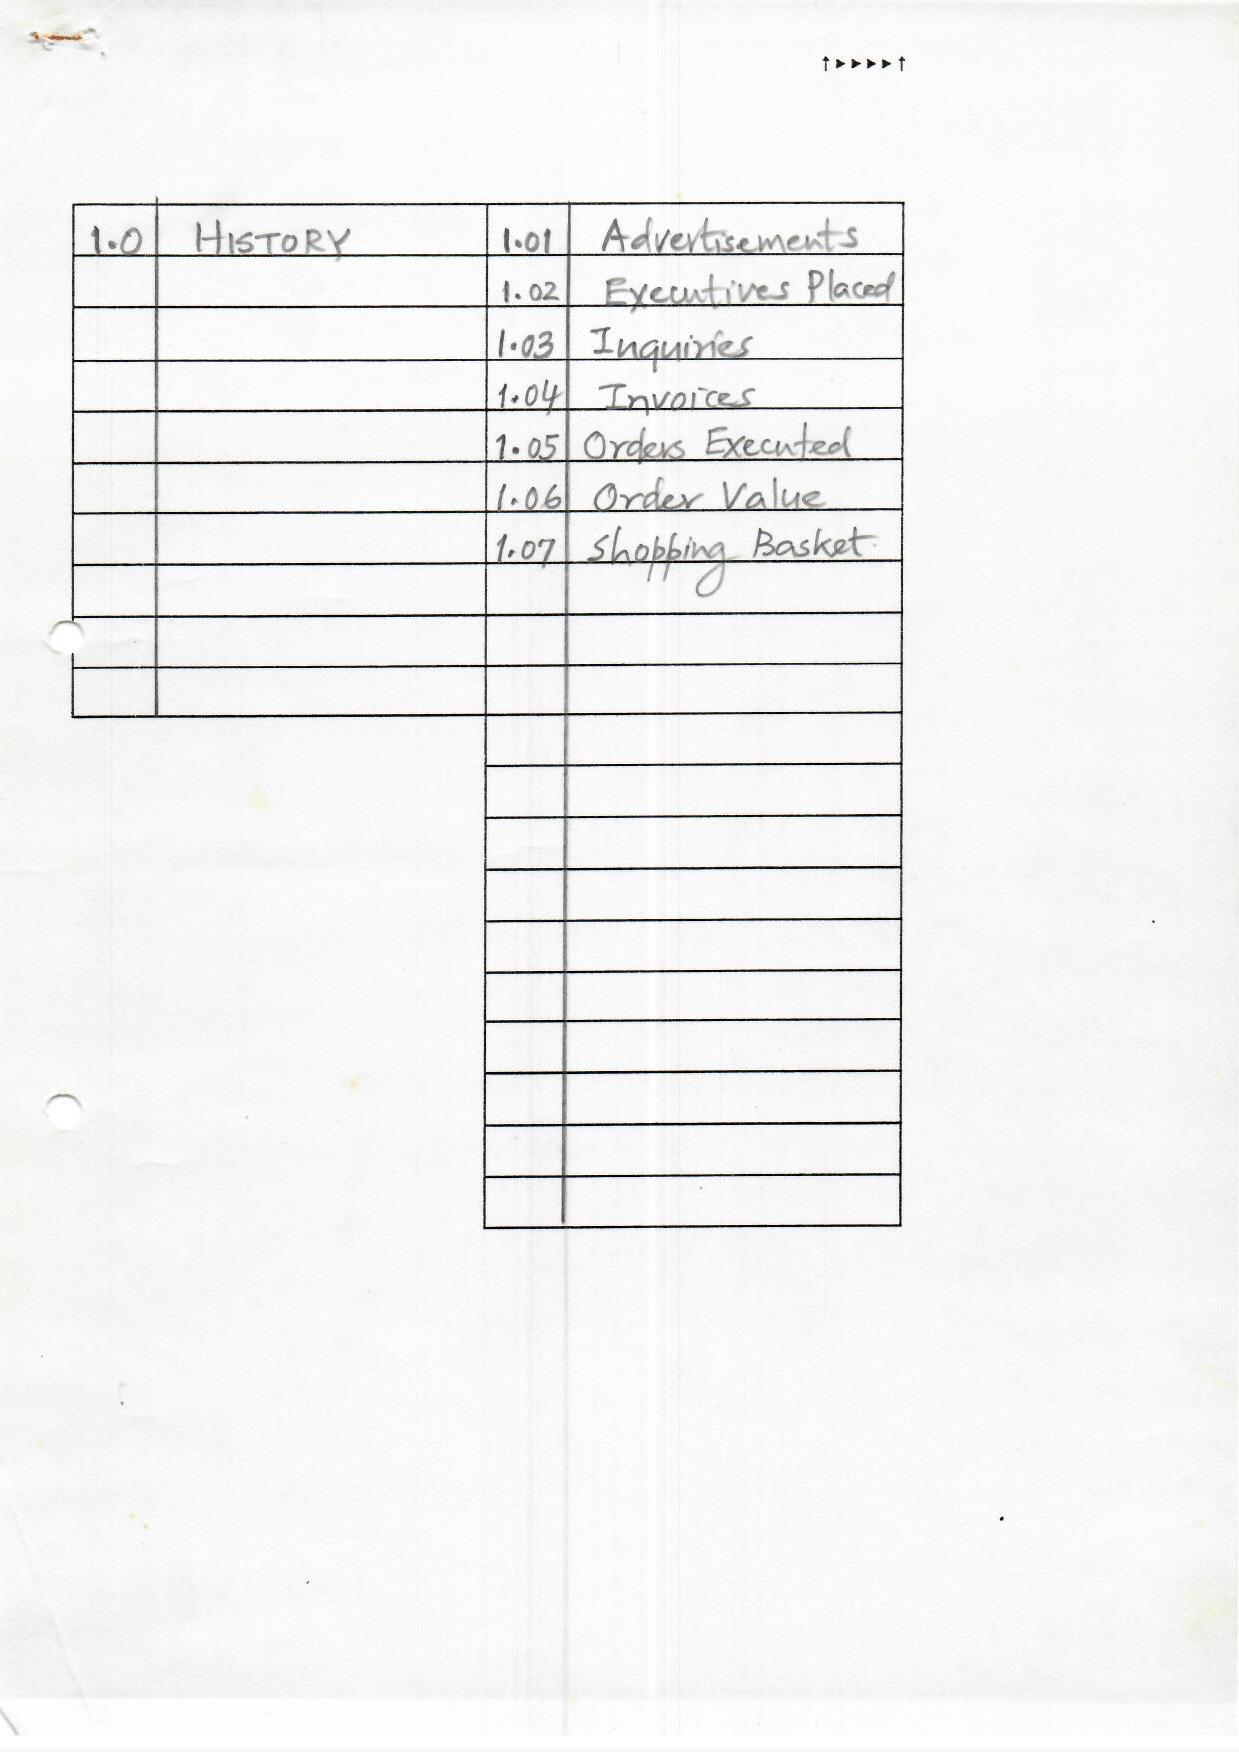 ↑▶▶▶▶↑
1.0 HISTORY 1.01 Advertisements
1.02 Executives Placed
1.03 Inquiries
1.04 Invoices
1.05 Orders Executed
1.06 Order Value
1.07 Shopping Basket